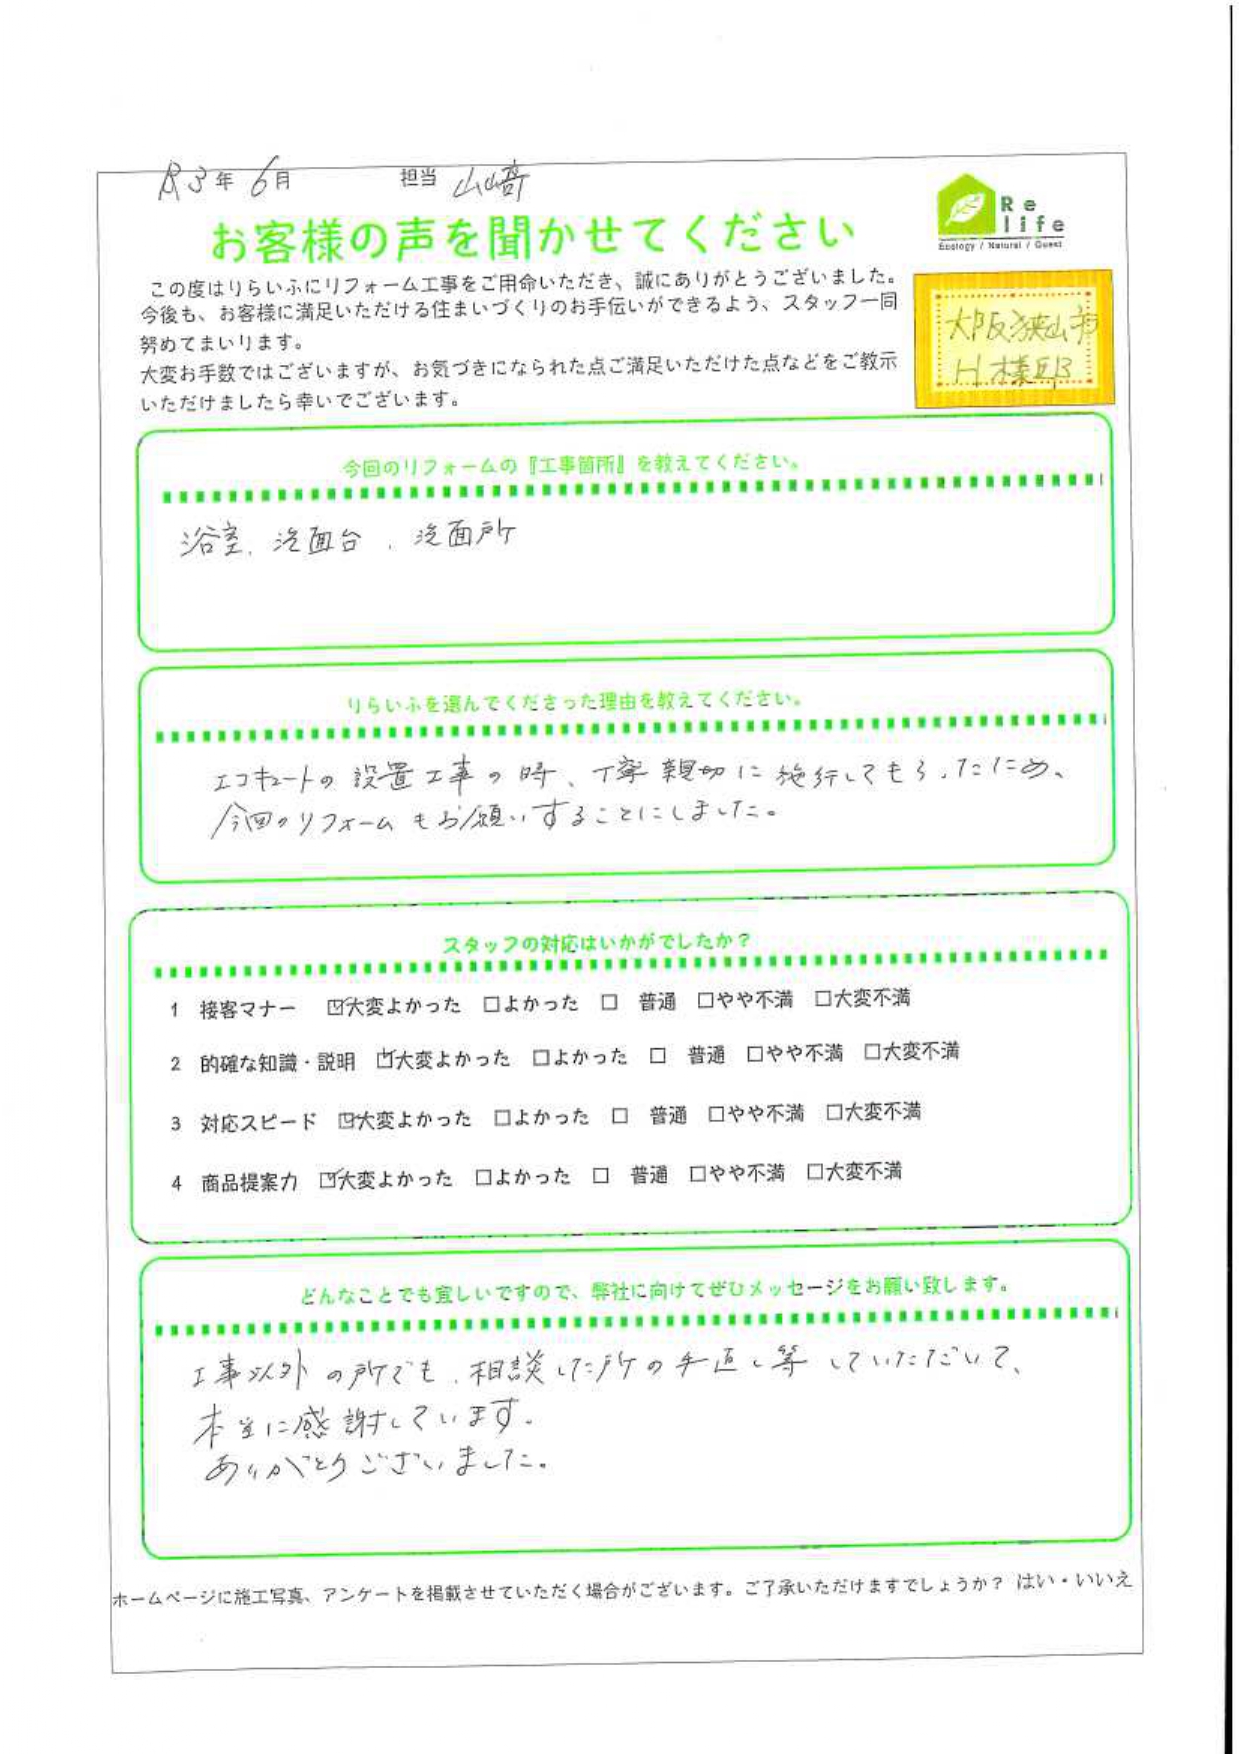 R3年 6月 担当 山崎
Re
life
Ecology / Natural / Quest
お客様の声を聞かせてください
この度はりらいふにリフォーム工事をご用命いただき、誠にありがとうございました。
今後も、お客様に満足いただける住まいづくりのお手伝いができるよう、スタッフ一同
努めてまいります。
大変お手数ではございますが、お気づきになられた点ご満足いただけた点などをご教示
いただけましたら幸いでございます。
大阪狭山市
H様邸
今回のリフォームの『工事箇所』を教えてください。
浴室、洗面台、洗面所
りらいふを選んでくださった理由を教えてください。
エコキュートの設置工事の時、丁寧親切に施行してもらったため、
今回のリフォームもお願いすることにしました。
スタッフの対応はいかがでしたか？
1 接客マナー ☑大変よかった □よかった □ 普通 □やや不満 □大変不満
2 的確な知識・説明 ☑大変よかった □よかった □ 普通 □やや不満 □大変不満
3 対応スピード ☑大変よかった □よかった □ 普通 □やや不満 □大変不満
4 商品提案力 ☑大変よかった □よかった □ 普通 □やや不満 □大変不満
どんなことでも宜しいですので、弊社に向けてぜひメッセージをお願い致します。
工事以外の所でも、相談した所の手直し等していただいて、
本当に感謝しています。
ありがとうございました。
ホームページに施工写真、アンケートを掲載させていただく場合がございます。ご了承いただけますでしょうか？ はい・いいえ